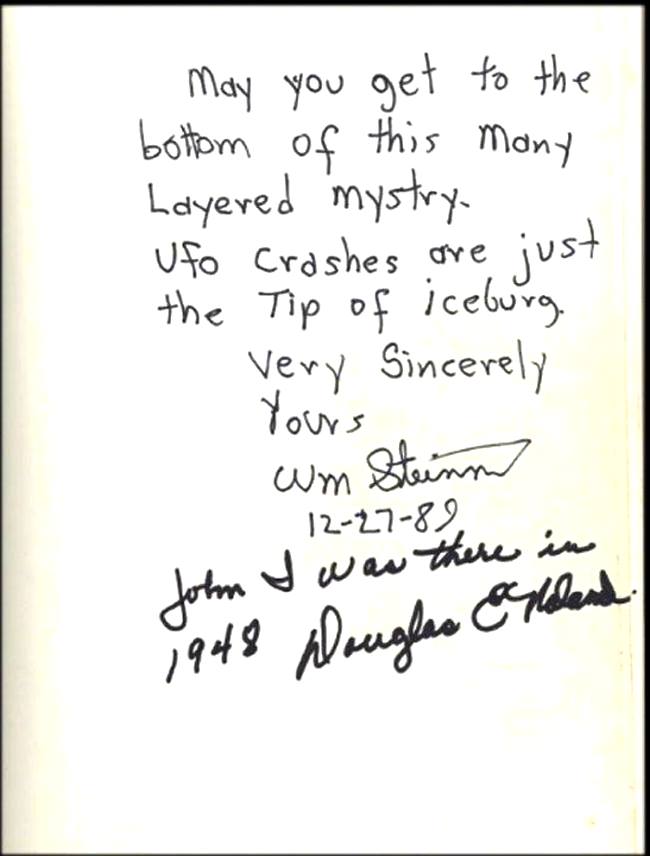 May you get to the
bottom of this Many
Layered mystry.
UFO Crashes are just
the Tip of iceburg.
Very Sincerely
Yours
Wm Steinm
12-27-89
John I was there in
1948 Douglas E Noland.